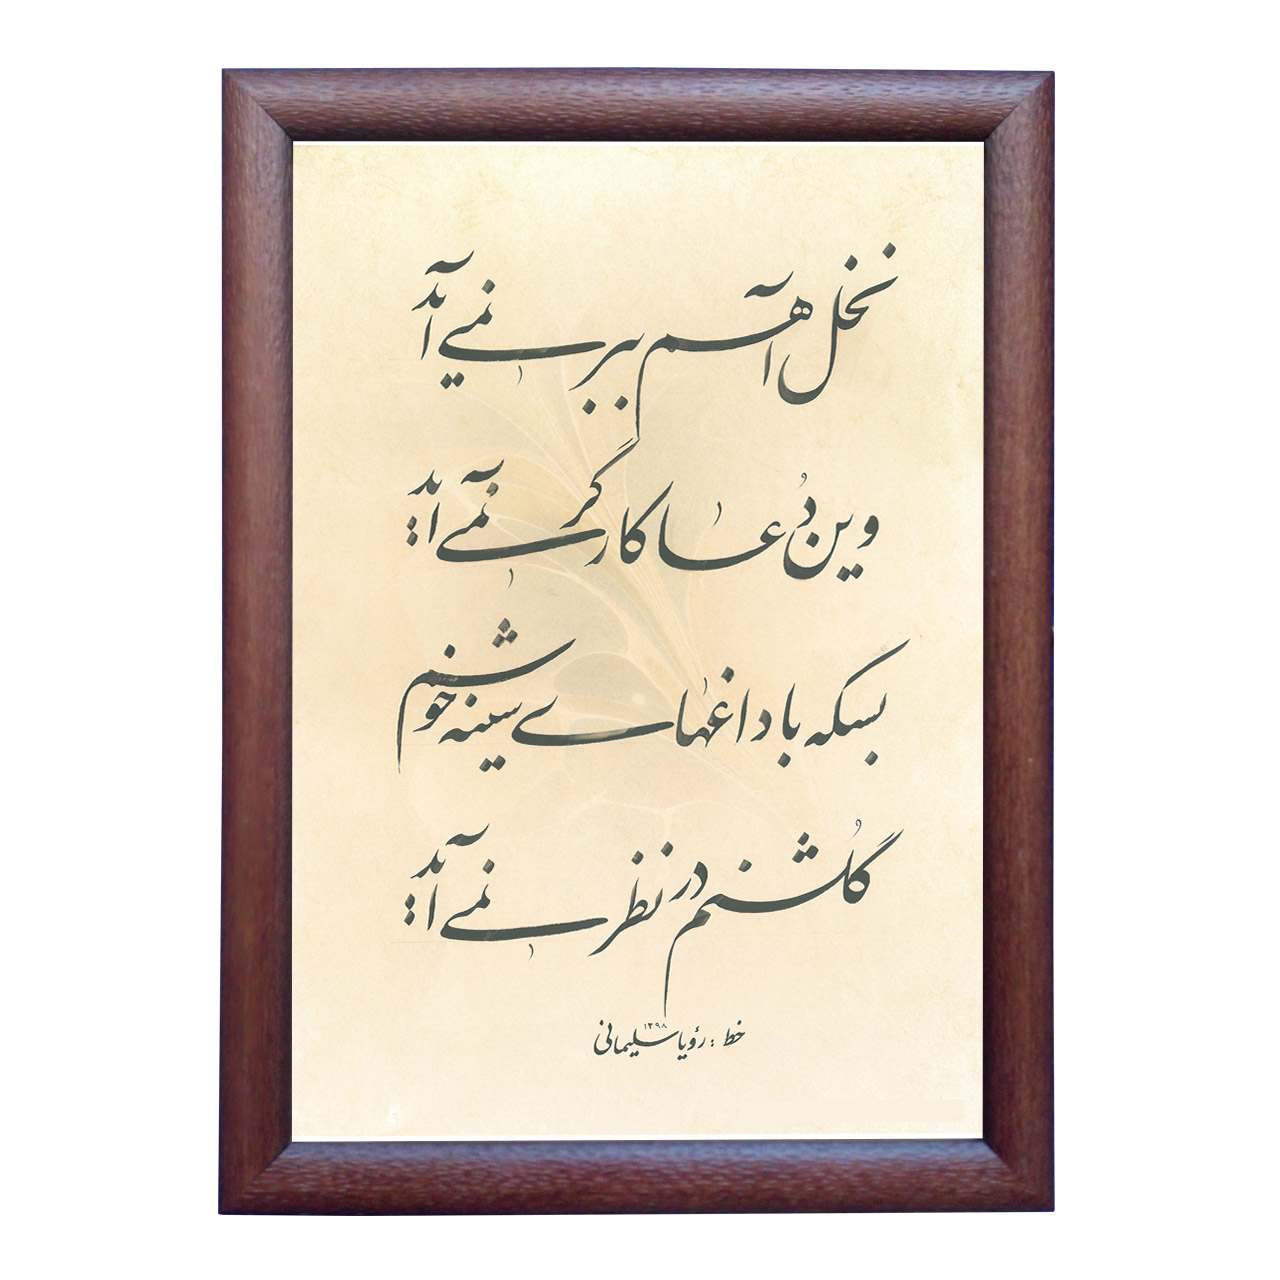 نخل آهم ببر نمی آید
وین دُعا کارگر نمی آید
بسکه با داغهای سینه خوشم
گُلشنم در نظر نمی آید
خط : رؤیا سلیمانی ۱۳۹۸